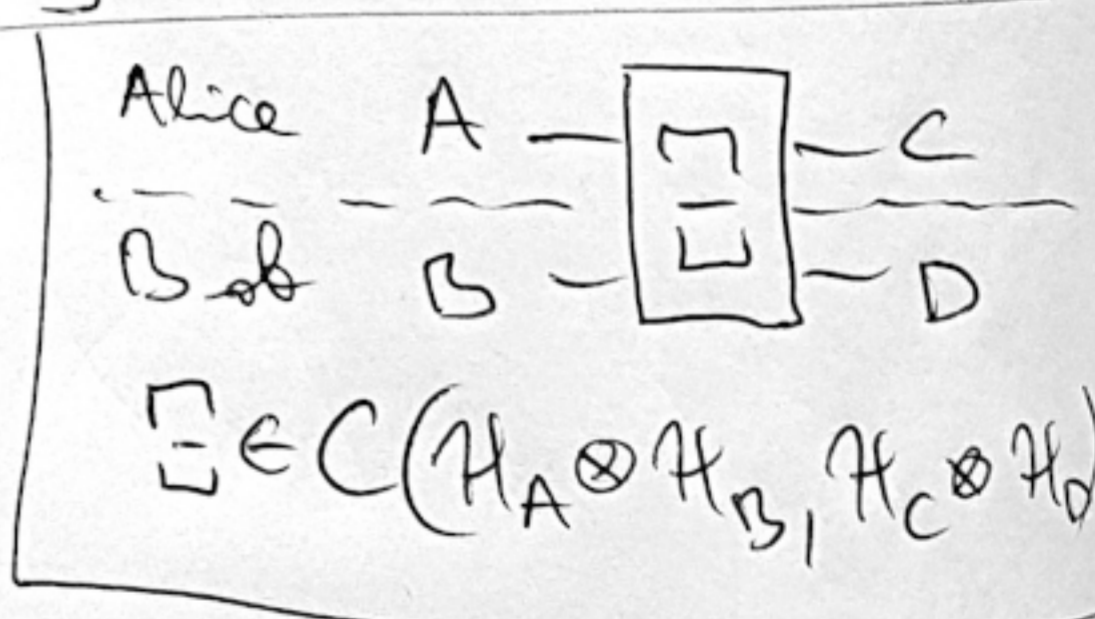 Alice A Ξ C
Bob B D
Ξ ∈ C(H_A ⊗ H_B, H_C ⊗ H_D)